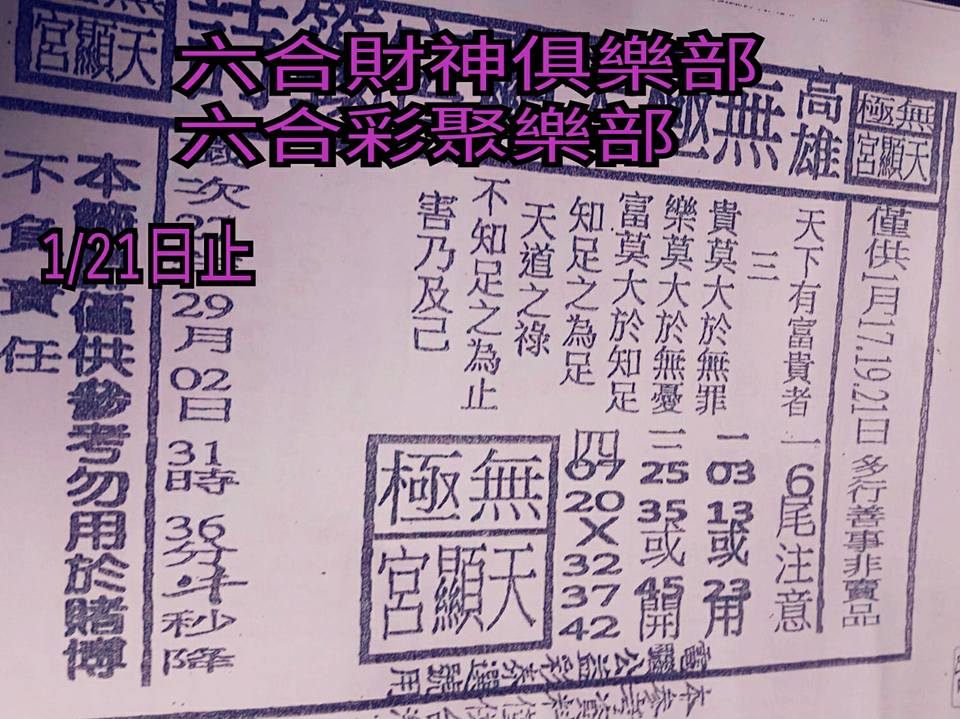 六合財神俱樂部
六合彩聚樂部
1/21日止
無極
天顯宮
高雄
無極
天顯宮
僅供1月17.19.21日多行善事非賣品
天下有富貴者
三
貴莫大於無罪
樂莫大於無憂
富莫大於知足
知足之為足
天道之祿
不知足之為止
害乃及己
一6尾注意
二03 13或23用
三25 35或45開
四07 20X32 37 42
無極
天顯宮
次 29月02日31時36分斗秒降
本籤僅供參考勿用於賭博
不負責任